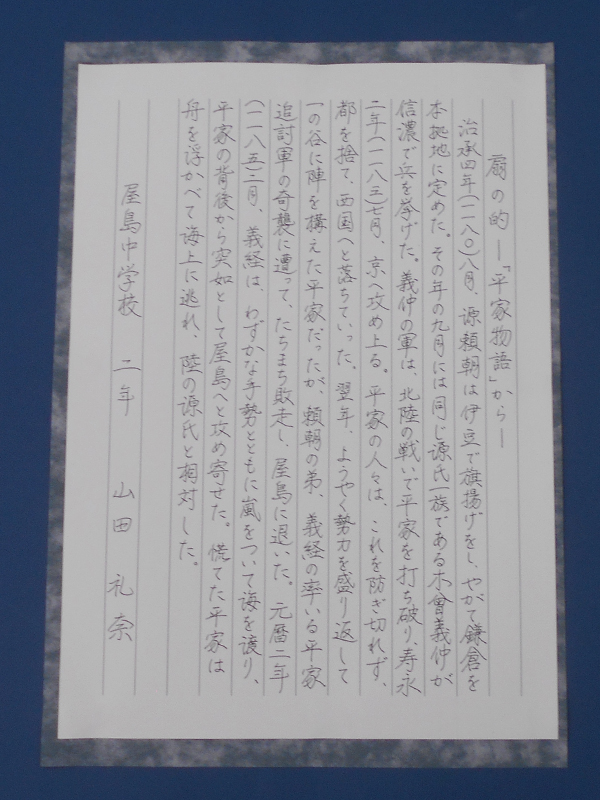 扇の的―「平家物語」から―
治承四年(一一八〇)八月、源頼朝は伊豆で旗揚げをし、やがて鎌倉を
本拠地に定めた。その年の九月には同じ源氏一族である木曾義仲が
信濃で兵を挙げた。義仲の軍は、北陸の戦いで平家を打ち破り、寿永
二年(一一八三)七月、京へ攻め上る。平家の人々は、これを防ぎ切れず、
都を捨て、西国へと落ちていった。翌年、ようやく勢力を盛り返して
一の谷に陣を構えた平家だったが、頼朝の弟、義経の率いる平家
追討軍の奇襲に遭って、たちまち敗走し、屋島に退いた。元暦二年
(一一八五)二月、義経は、わずかな手勢とともに嵐をついて海を渡り、
平家の背後から突如として屋島へと攻め寄せた。慌てた平家は
舟を浮かべて海上に逃れ、陸の源氏と相対した。
屋島中学校 二年 山田 礼奈